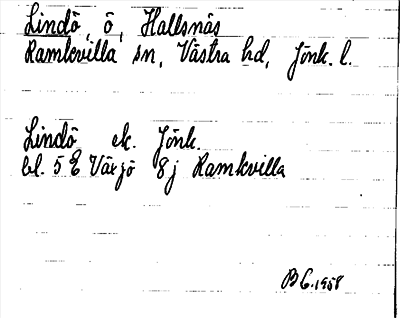 Lindö, ö, Hallsnäs
Ramkvilla sn, Västra hd, Jönk. l.
Lindö ek. Jönk.
bl. 5 E Växjö 8j Ramkvilla
B G. 1958